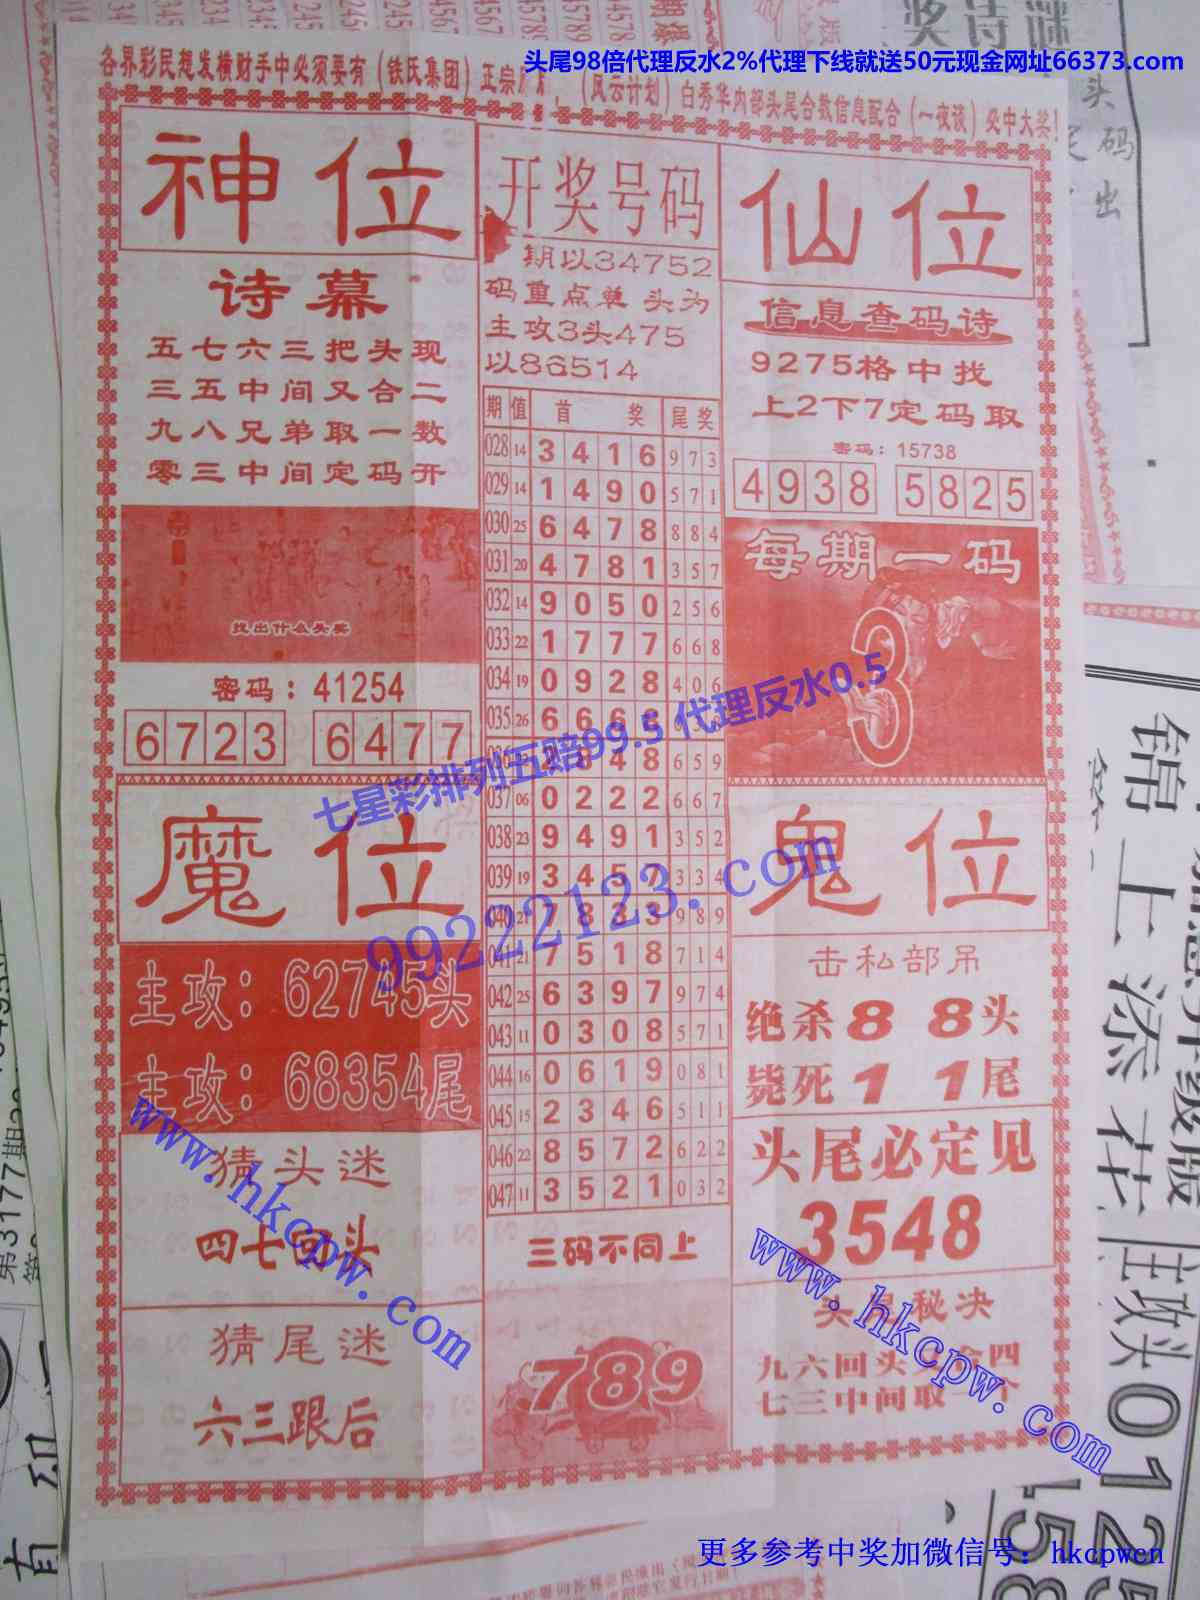 头尾98倍代理反水2%代理下线就送50元现金网址66373.com
各界彩民想发横财手中必须要有(铁氏集团)正宗
(风云计划)白秀华内部头尾合数信息配合(一夜谈)必中大奖!
神位
诗幕
五七六三把头现
三五中间又合二
九八兄弟取一数
零三中间定码开
找出什么头奖
密码:41254
6723 6477
魔位
主攻:62745头
主攻:68354尾
猜头迷
四七回头
猜尾迷
六三跟后
开奖号码
期以34752
码重点单 头为
主攻3头475
以86514
期 值 首 奖 尾奖
028 14 3 4 1 6 9 7 3
029 14 1 4 9 0 5 7 1
030 25 6 4 7 8 8 8 4
031 20 4 7 8 1 3 5 7
032 14 9 0 5 0 2 5 6
033 22 1 7 7 7 6 6 8
034 19 0 9 2 8 4 0 6
035 26 6 6 6 8
4 8 6 5 9
037 06 0 2 2 2 6 6 7
038 23 9 4 9 1 3 5 2
039 19 3 4 5 7 3 3 4
040 21 7 8 3 3 9 8 9
041 21 7 5 1 8 7 1 4
042 25 6 3 9 7 9 7 4
043 11 0 3 0 8 5 7 1
044 16 0 6 1 9 0 8 1
045 15 2 3 4 6 5 1 1
046 22 8 5 7 2 6 2 2
047 11 3 5 2 1 0 3 2
三码不同上
789
仙位
信息查码诗
9275格中找
上2下7定码取
密码:15738
4938 5825
每期一码
3
鬼位
击私部吊
绝杀8 8头
毙死1 1尾
头尾必定见
3548
头尾秘决
九六回头又合四
七三中间取一个
七星彩排列五赔99.5 代理反水0.5
99222123.com
www.hkcpw.com
www.hkcpw.com
更多参考中奖加微信号:hkcpwcn
锦上添花
主攻头0125
458
第3177期
头
码
出